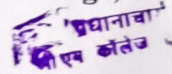 प्रधानाचा
एम कॉलेज